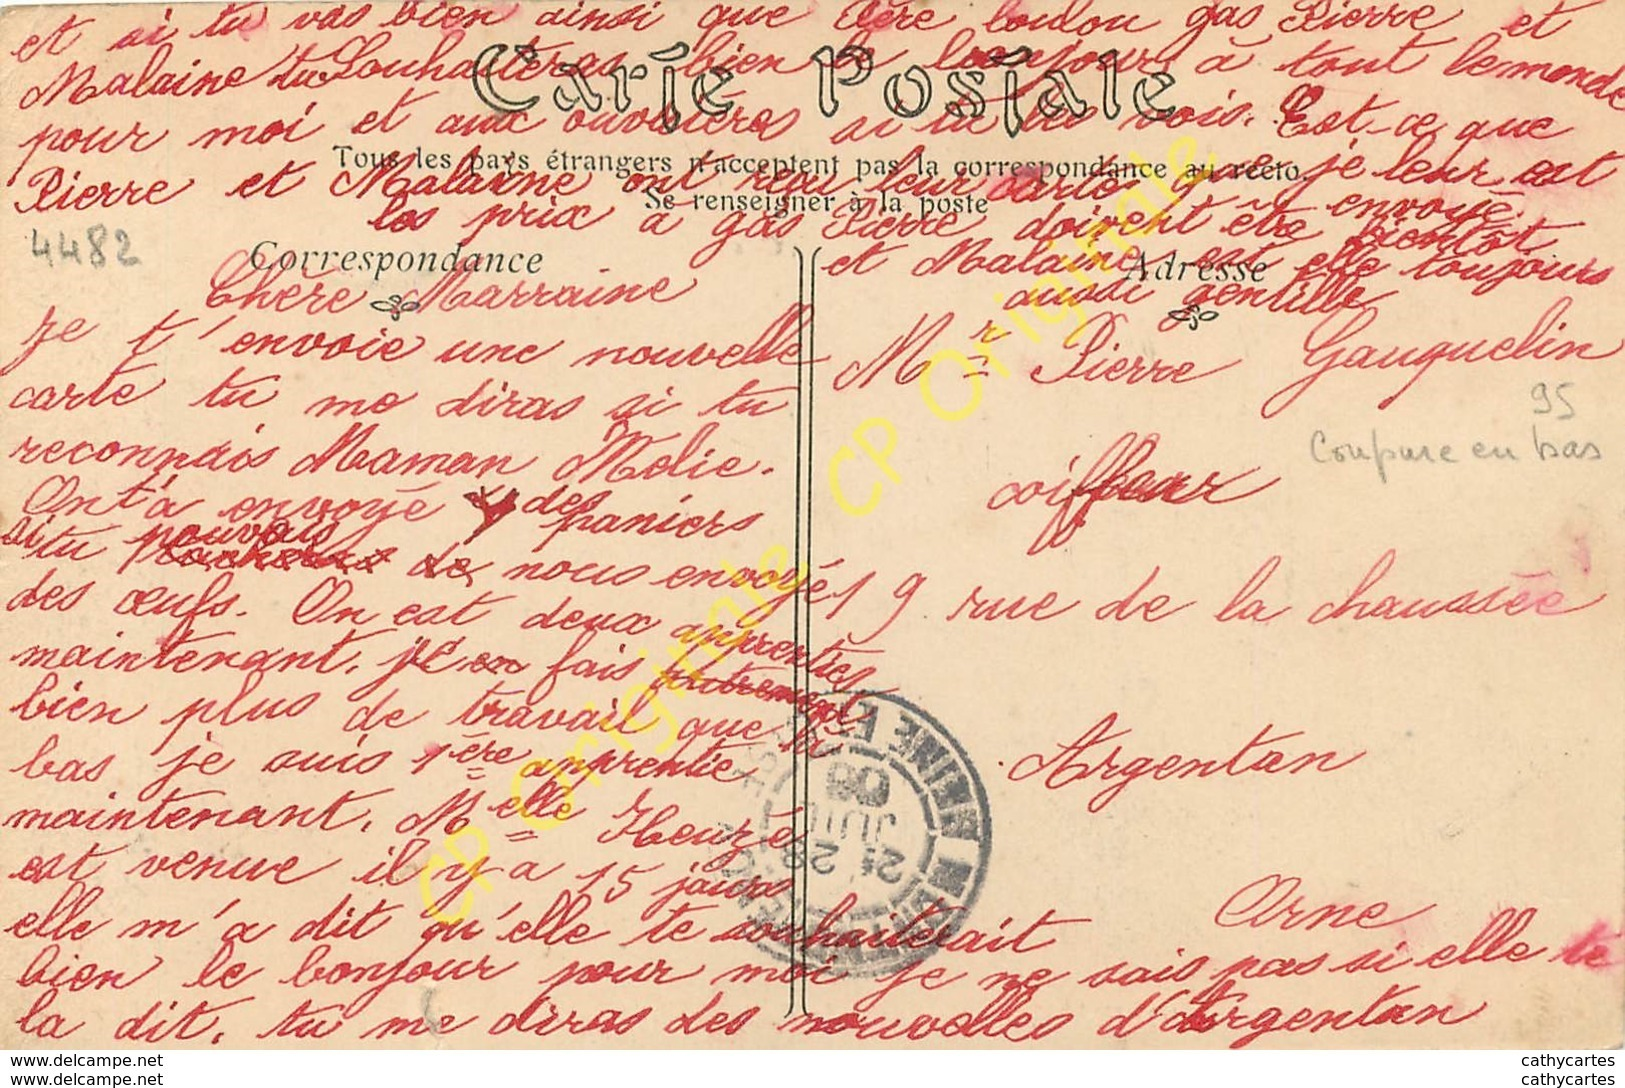 et si tu vas bien ainsi que Père loulou gas Pierre et
Malaine tu Souhaiteras bien le bonjour à tout le monde
Carte Postale
pour moi et aux ouvrières si tu les vois. Est-ce que
Tous les pays étrangers n'acceptent pas la correspondance au recto.
Pierre et Malaine ont reçu leur carte que je leur est
Se renseigner à la poste
envoyé.
les prix à gas Pierre doivent être bientôt
4482
Correspondance
et Malaine est elle toujours
Adresse
aussi gentille
Chère Marraine
Je t'envoie une nouvelle
carte tu me diras si tu
reconnais Maman Melie.
On t'a envoyé des paniers
si tu pouvais de nous envoyé
des œufs. On est deux apprenties
maintenant. je en fais autrement
bien plus de travail que là
bas je suis 1ère apprentie
maintenant. Melle Heuzé
est venue il y a 15 jours
elle m'a dit qu'elle te souhaiterait
bien le bonjour pour moi je ne sais pas si elle te
la dit. tu me diras des nouvelles d'Argentan
Mr Pierre Gauquelin
95
Coupure en bas
coiffeur
19 rue de la chaussée
Argentan
Orne
CP Originale
CP Originale
cathycartes
cathycartes
cathycartes
cathycartes